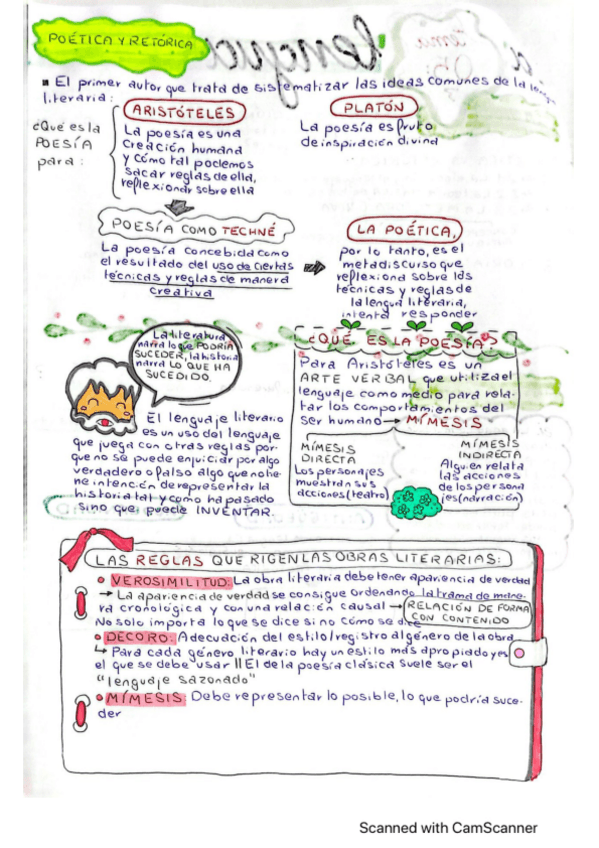 POÉTICA Y RETÓRICA
El primer autor que trata de sistematizar las ideas comunes de la
literaria:
¿Qué es la
POESÍA
para:
ARISTÓTELES
La poesía es una
creación humana
y cómo tal podemos
sacar reglas de ella,
reflexionar sobre ella
PLATÓN
La poesía es fruto
de inspiración divina
POESÍA COMO TECHNÉ
La poesía concebida como
el resultado del uso de ciertas
técnicas y reglas de manera
creativa
LA POÉTICA,
por lo tanto, es el
metadiscurso que
reflexiona sobre las
técnicas y reglas de
la lengua literaria,
intenta responder
La literatura
narra lo que PODRÍA
SUCEDER, la historia
narra LO QUE HA
SUCEDIDO.
El lenguaje literario
es un uso del lenguaje
que juega con otras reglas por-
que no se puede enjuiciar por algo
verdadero o falso algo que no tie-
ne intención de representar la
historia tal y como ha pasado
sino que puede INVENTAR.
¿QUÉ ES LA POESÍA?
Para Aristóteles es un
ARTE VERBAL que utiliza el
lenguaje como medio para rela-
tar los comportamientos del
ser humano → MÍMESIS
MÍMESIS
DIRECTA
Los personajes
muestran sus
acciones (teatro)
MÍMESIS
INDIRECTA
Alguien relata
las acciones
de los persona
jes (narración)
LAS REGLAS QUE RIGEN LAS OBRAS LITERARIAS:
• VEROSIMILITUD: La obra literaria debe tener apariencia de verdad
→ La apariencia de verdad se consigue ordenando la trama de mane-
ra cronológica y con una relación causal → RELACIÓN DE FORMA
CON CONTENIDO
No solo importa lo que se dice si no cómo se dice
• DECORO: Adecuación del estilo/registro al género de la obra
↳ Para cada género literario hay un estilo más apropiado y es
el que se debe usar || El de la poesía clásica suele ser el
"lenguaje sazonado"
• MÍMESIS: Debe representar lo posible, lo que podría suce-
der
Scanned with CamScanner